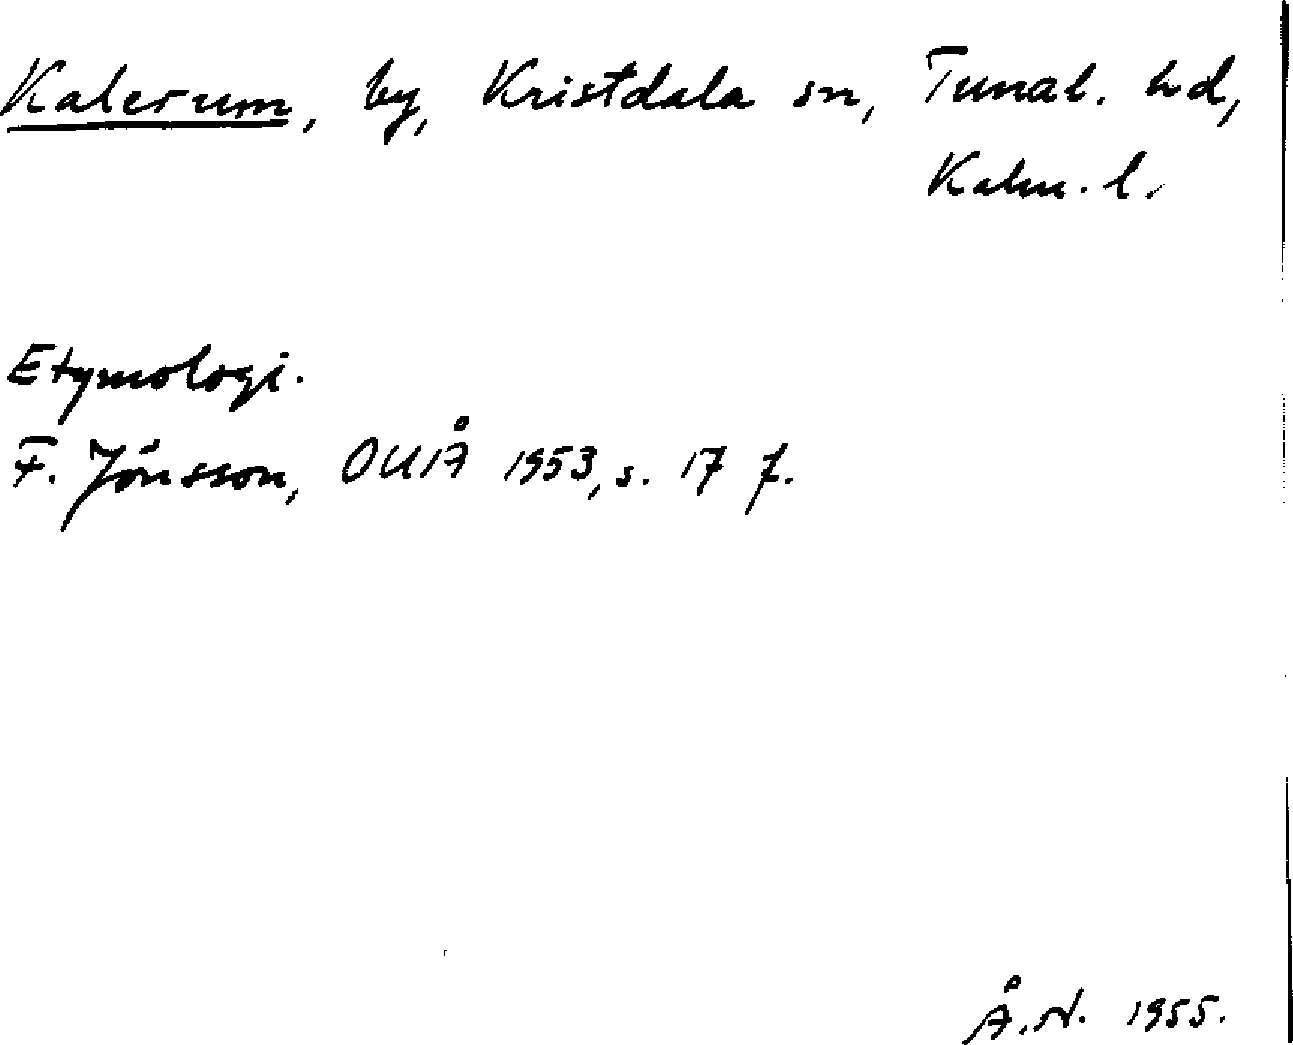 Kalerum, by, Kristdala sn, Tunal. hd,
Kalm. l.
Etymologi.
F. Jönsson, OUÅ 1953, s. 17 f.
Å. N. 1955.